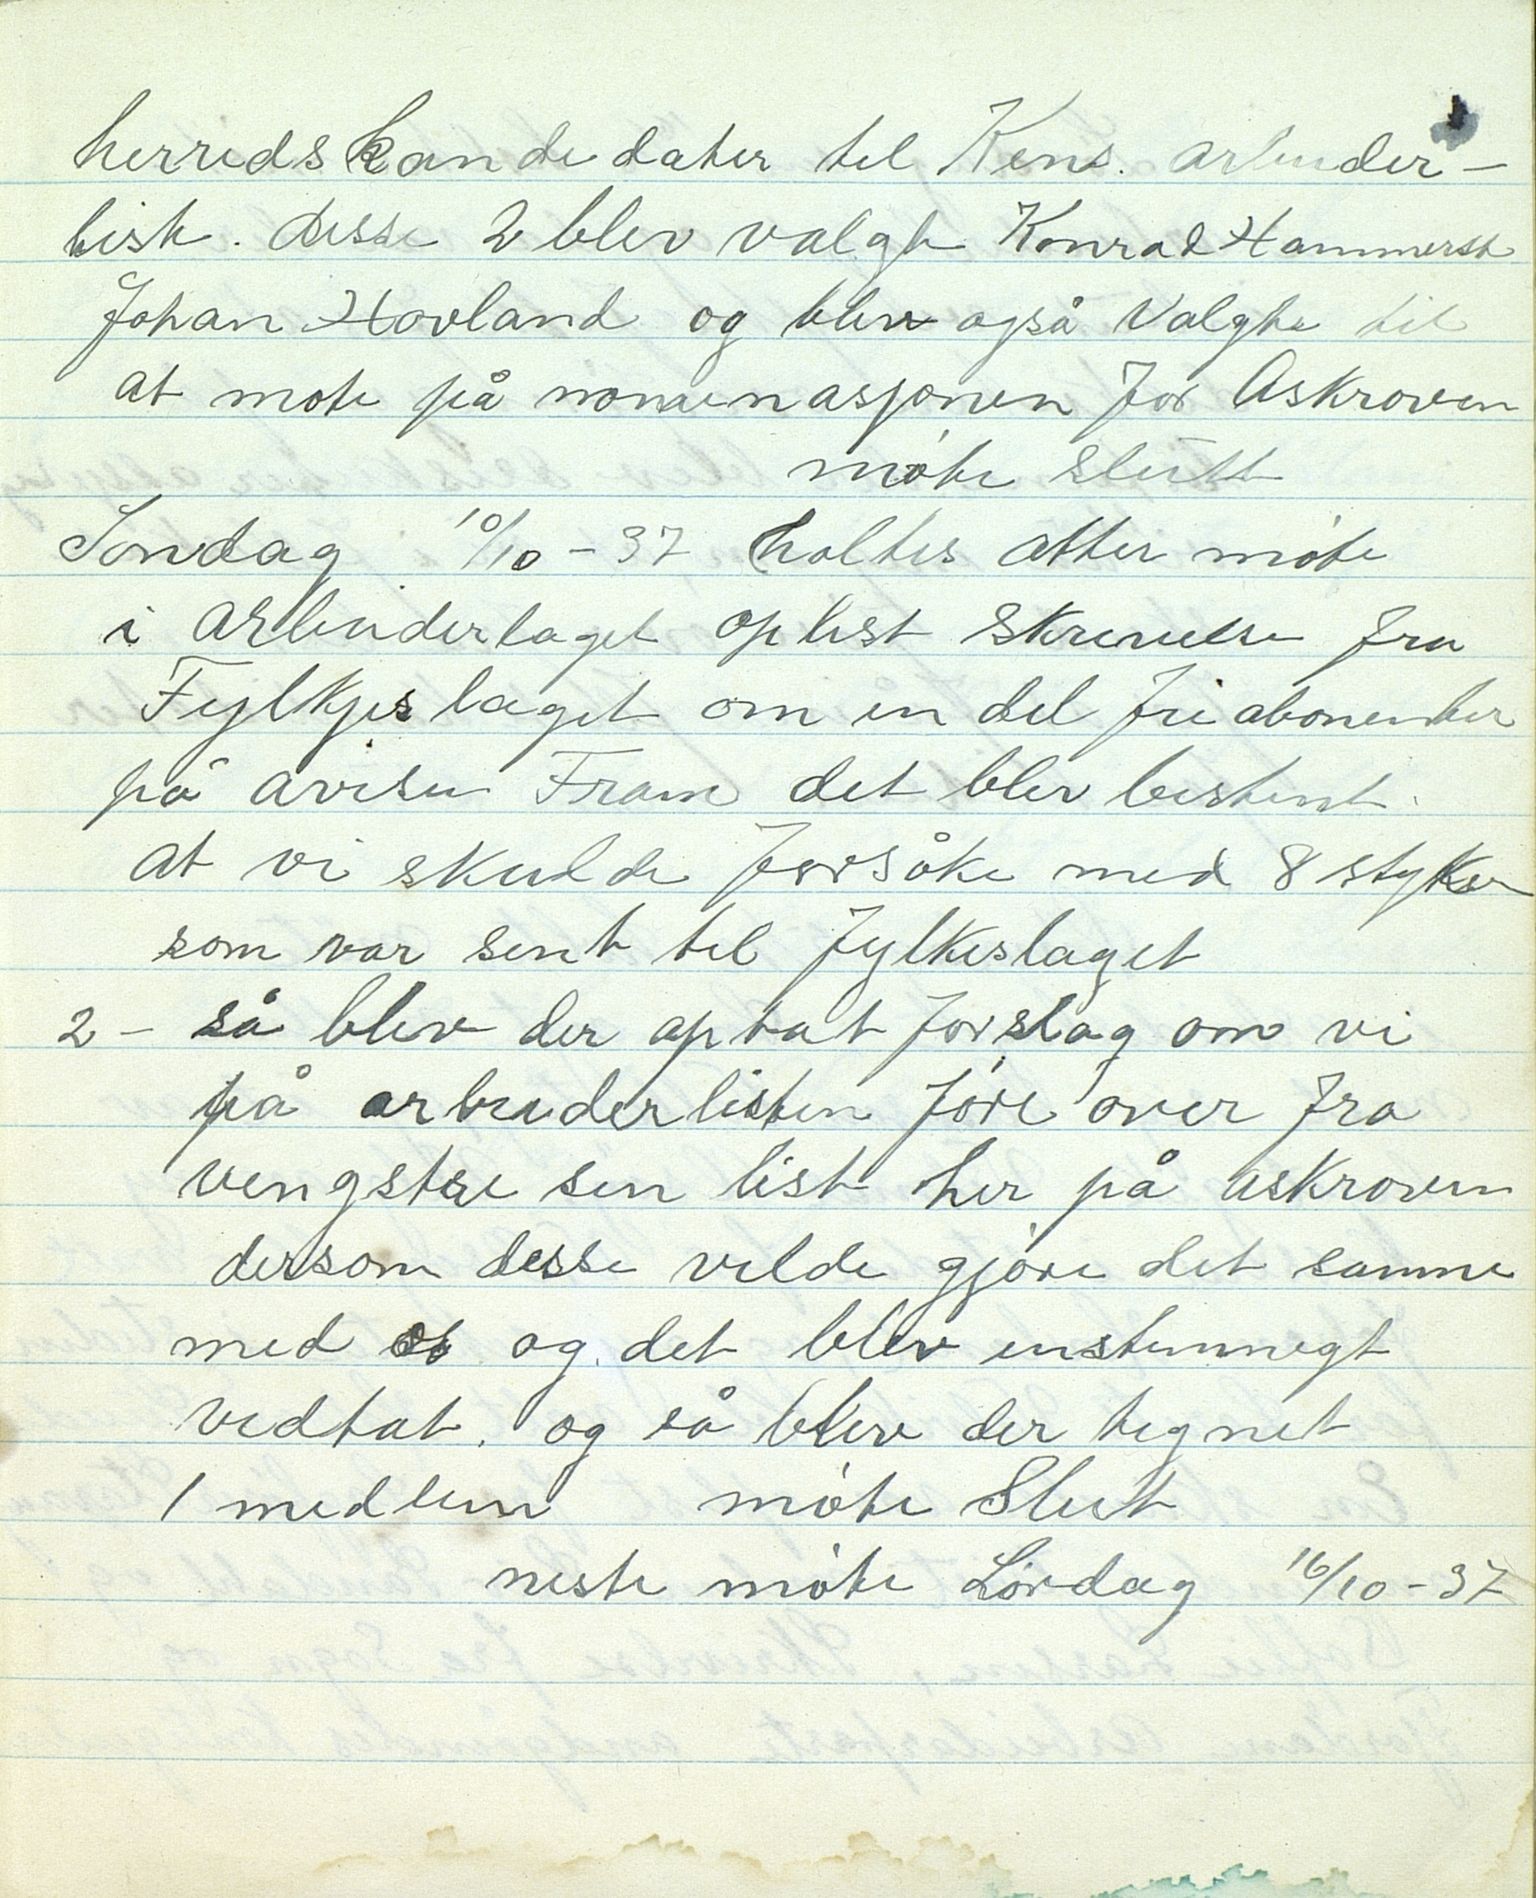 herredskandedater til Kens. arbeider-
liste. desse 2 blev valgte Konrad Hammerst
Johan Hovland og blev også Valgte til
at møte på nomenasjonen for Askroven
møte slutt
Søndag 10/10-37 holtes atter møte
i arbeiderlaget oplest skrivelse fra
Fylkjeslaget om en del fri abonenter
på avisen Fram det blev bestemt.
at vi skulde forsøke med 8 styker
som var sent til fylkeslaget
2 - så blev der optat forslag om vi
på arbeiderlisten føre over fra
vengstre sen liste her på askroven
dersom desse velde gjøre det samme
med os og det blev enstemmegt
vedtat. og så blev der tegnet
1 medlem møte Slut
neste møte Lørdag 16/10-37